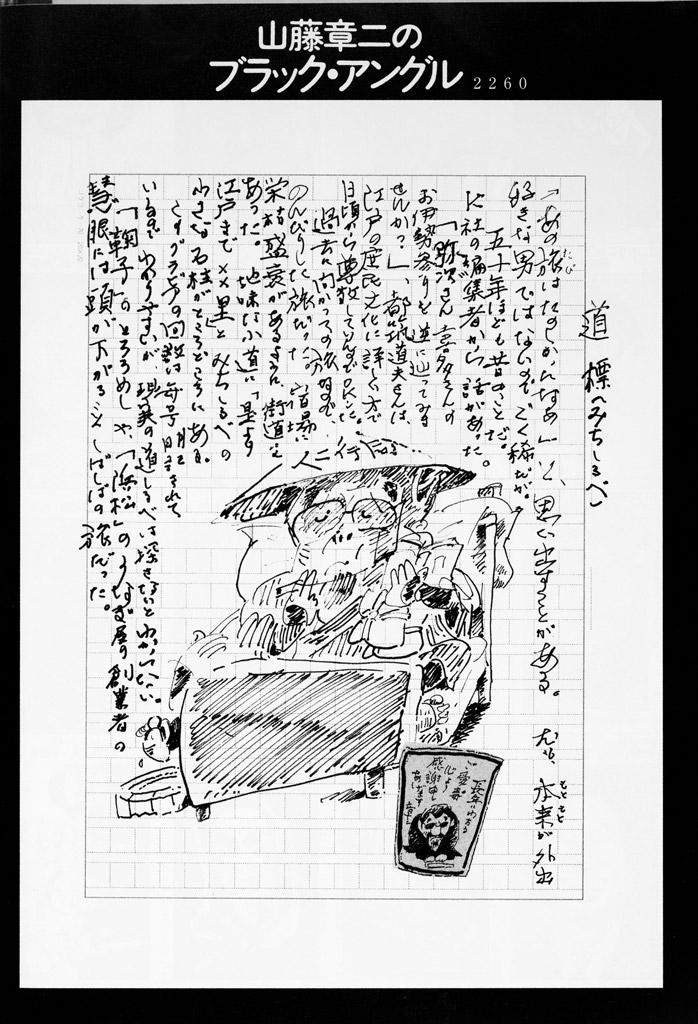 山藤章二の
ブラック・アングル 2260
道標〈みちしるべ〉
「あの旅はたのしかったなぁ」と、思い出すことがある。
本来が外出
好きな男ではないのでごく稀だが。
五十年ほども昔のことだ。
K社の編集者から話があった。
「弥次さん喜多さんの
お伊勢参りを逆に辿ってみま
せんか?」、都筑道夫さんは、
江戸の庶民文化に詳しい方で
日頃から尊敬してんのでOKした。
過去に向かっての旅なので、二人行
のんびりした旅だった。宿場に
栄枯盛衰があるように、街道に
あった。地味な小道に「是より
江戸まで××里」とみちしるべの
小さな石柱がところどころにある。
回数は毎号明記されて
いるのでわかりやすいが、現実の道しるべは探さないとわからない。
「鞠子」のとろろめしや、「浜松」のうなぎ屋の創業者の
慧眼には頭が下がること、しばしばの旅だった。
長年にわたる
ご愛毒
感謝申し
あげます
章二